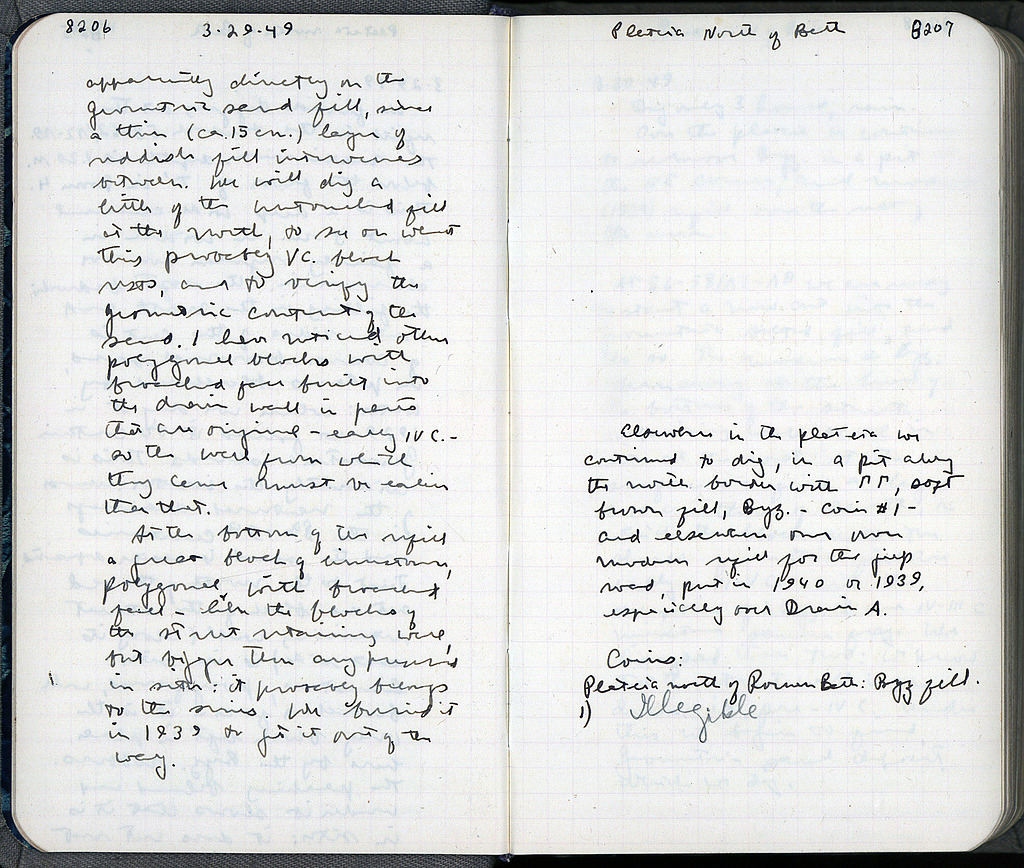 8206
3.29.49
apparently directly on the
geometric sand fill, since
a thin (ca. 15 cm.) layer of
reddish fill intervenes
between. We will dig a
little of the untouched fill
at the north, to see on what
this probably VC. block
rests, and to verify the
geometric content of the
sand. I have noticed other
polygonal blocks with
broached face built into
the drain wall in parts
that are original - early IVC. -
so the wall from which
they came must be earlier
than that.
At the bottom of the refill
a great block of limestone,
polygonal, with broached
face like the blocks of
the street retaining wall,
but bigger than any preserved
in situ: it probably belongs
to the series. We buried it
in 1939 to get it out of the
way.
Plateia North of Bath
8207
Elsewhere in the plateia we
continued to dig, in a pit along
the north border with ΠΓ, soft
brown fill, Byz. - Coin #1 -
and elsewhere our own
modern refill for the jeep
road, put in 1940 or 1939,
especially over Drain A.
Coins:
Plateia north of Roman Bath: Byz fill.
1) Illegible